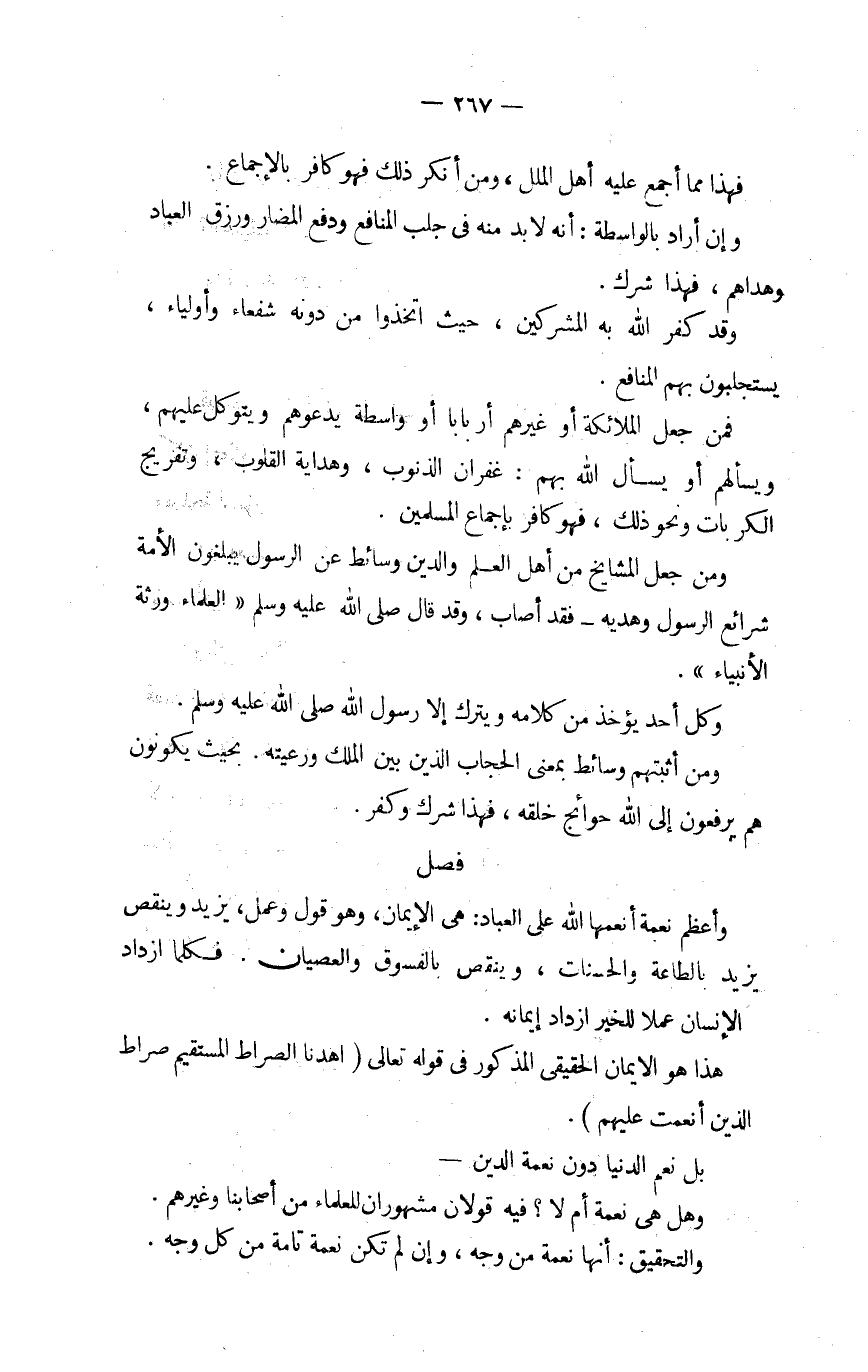 — ٢٦٧ —
فهذا مما أجمع عليه أهل الملل ، ومن أنكر ذلك فهو كافر بالإجماع .
و إن أراد بالواسطة : أنه لابد منه فى جلب المنافع ودفع المضار ورزق العباد
وهداهم ، فهذا شرك .
وقد كفر الله به المشركين ، حيث اتخذوا من دونه شفعاء وأولياء ،
يستجلبون بهم المنافع .
فمن جعل الملائكة أو غيرهم أربابا أو واسطة يدعوهم ويتوكل عليهم ،
ويسألهم أو يسأل الله بهم : غفران الذنوب ، وهداية القلوب ، وتفريج
الكربات ونحو ذلك ، فهو كافر بإجماع المسلمين .
ومن جعل المشايخ من أهل العلم والدين وسائط عن الرسول يبلغون الأمة
شرائع الرسول وهديه – فقد أصاب ، وقد قال صلى الله عليه وسلم « العلماء ورثة
الأنبياء » .
وكل أحد يؤخذ من كلامه ويترك إلا رسول الله صلى الله عليه وسلم .
ومن أثبتهم وسائط بمعنى الحجاب الذين بين الملك ورعيته . بحيث يكونون
هم يرفعون إلى الله حوائج خلقه ، فهذا شرك وكفر .
فصل
وأعظم نعمة أنعمها الله على العباد: هى الإيمان، وهو قول وعمل، يزيد وينقص
يزيد بالطاعة والحسنات ، وينقص بالفسوق والعصيان . فكلما ازداد
الإنسان عملا للخير ازداد إيمانه .
هذا هو الايمان الحقيقى المذكور فى قوله تعالى ( اهدنا الصراط المستقيم صراط
الذين أنعمت عليهم ) .
بل نعم الدنيا دون نعمة الدين —
وهل هى نعمة أم لا ؟ فيه قولان مشهوران للعلماء من أصحابنا وغيرهم .
والتحقيق : أنها نعمة من وجه ، و إن لم تكن نعمة تامة من كل وجه .